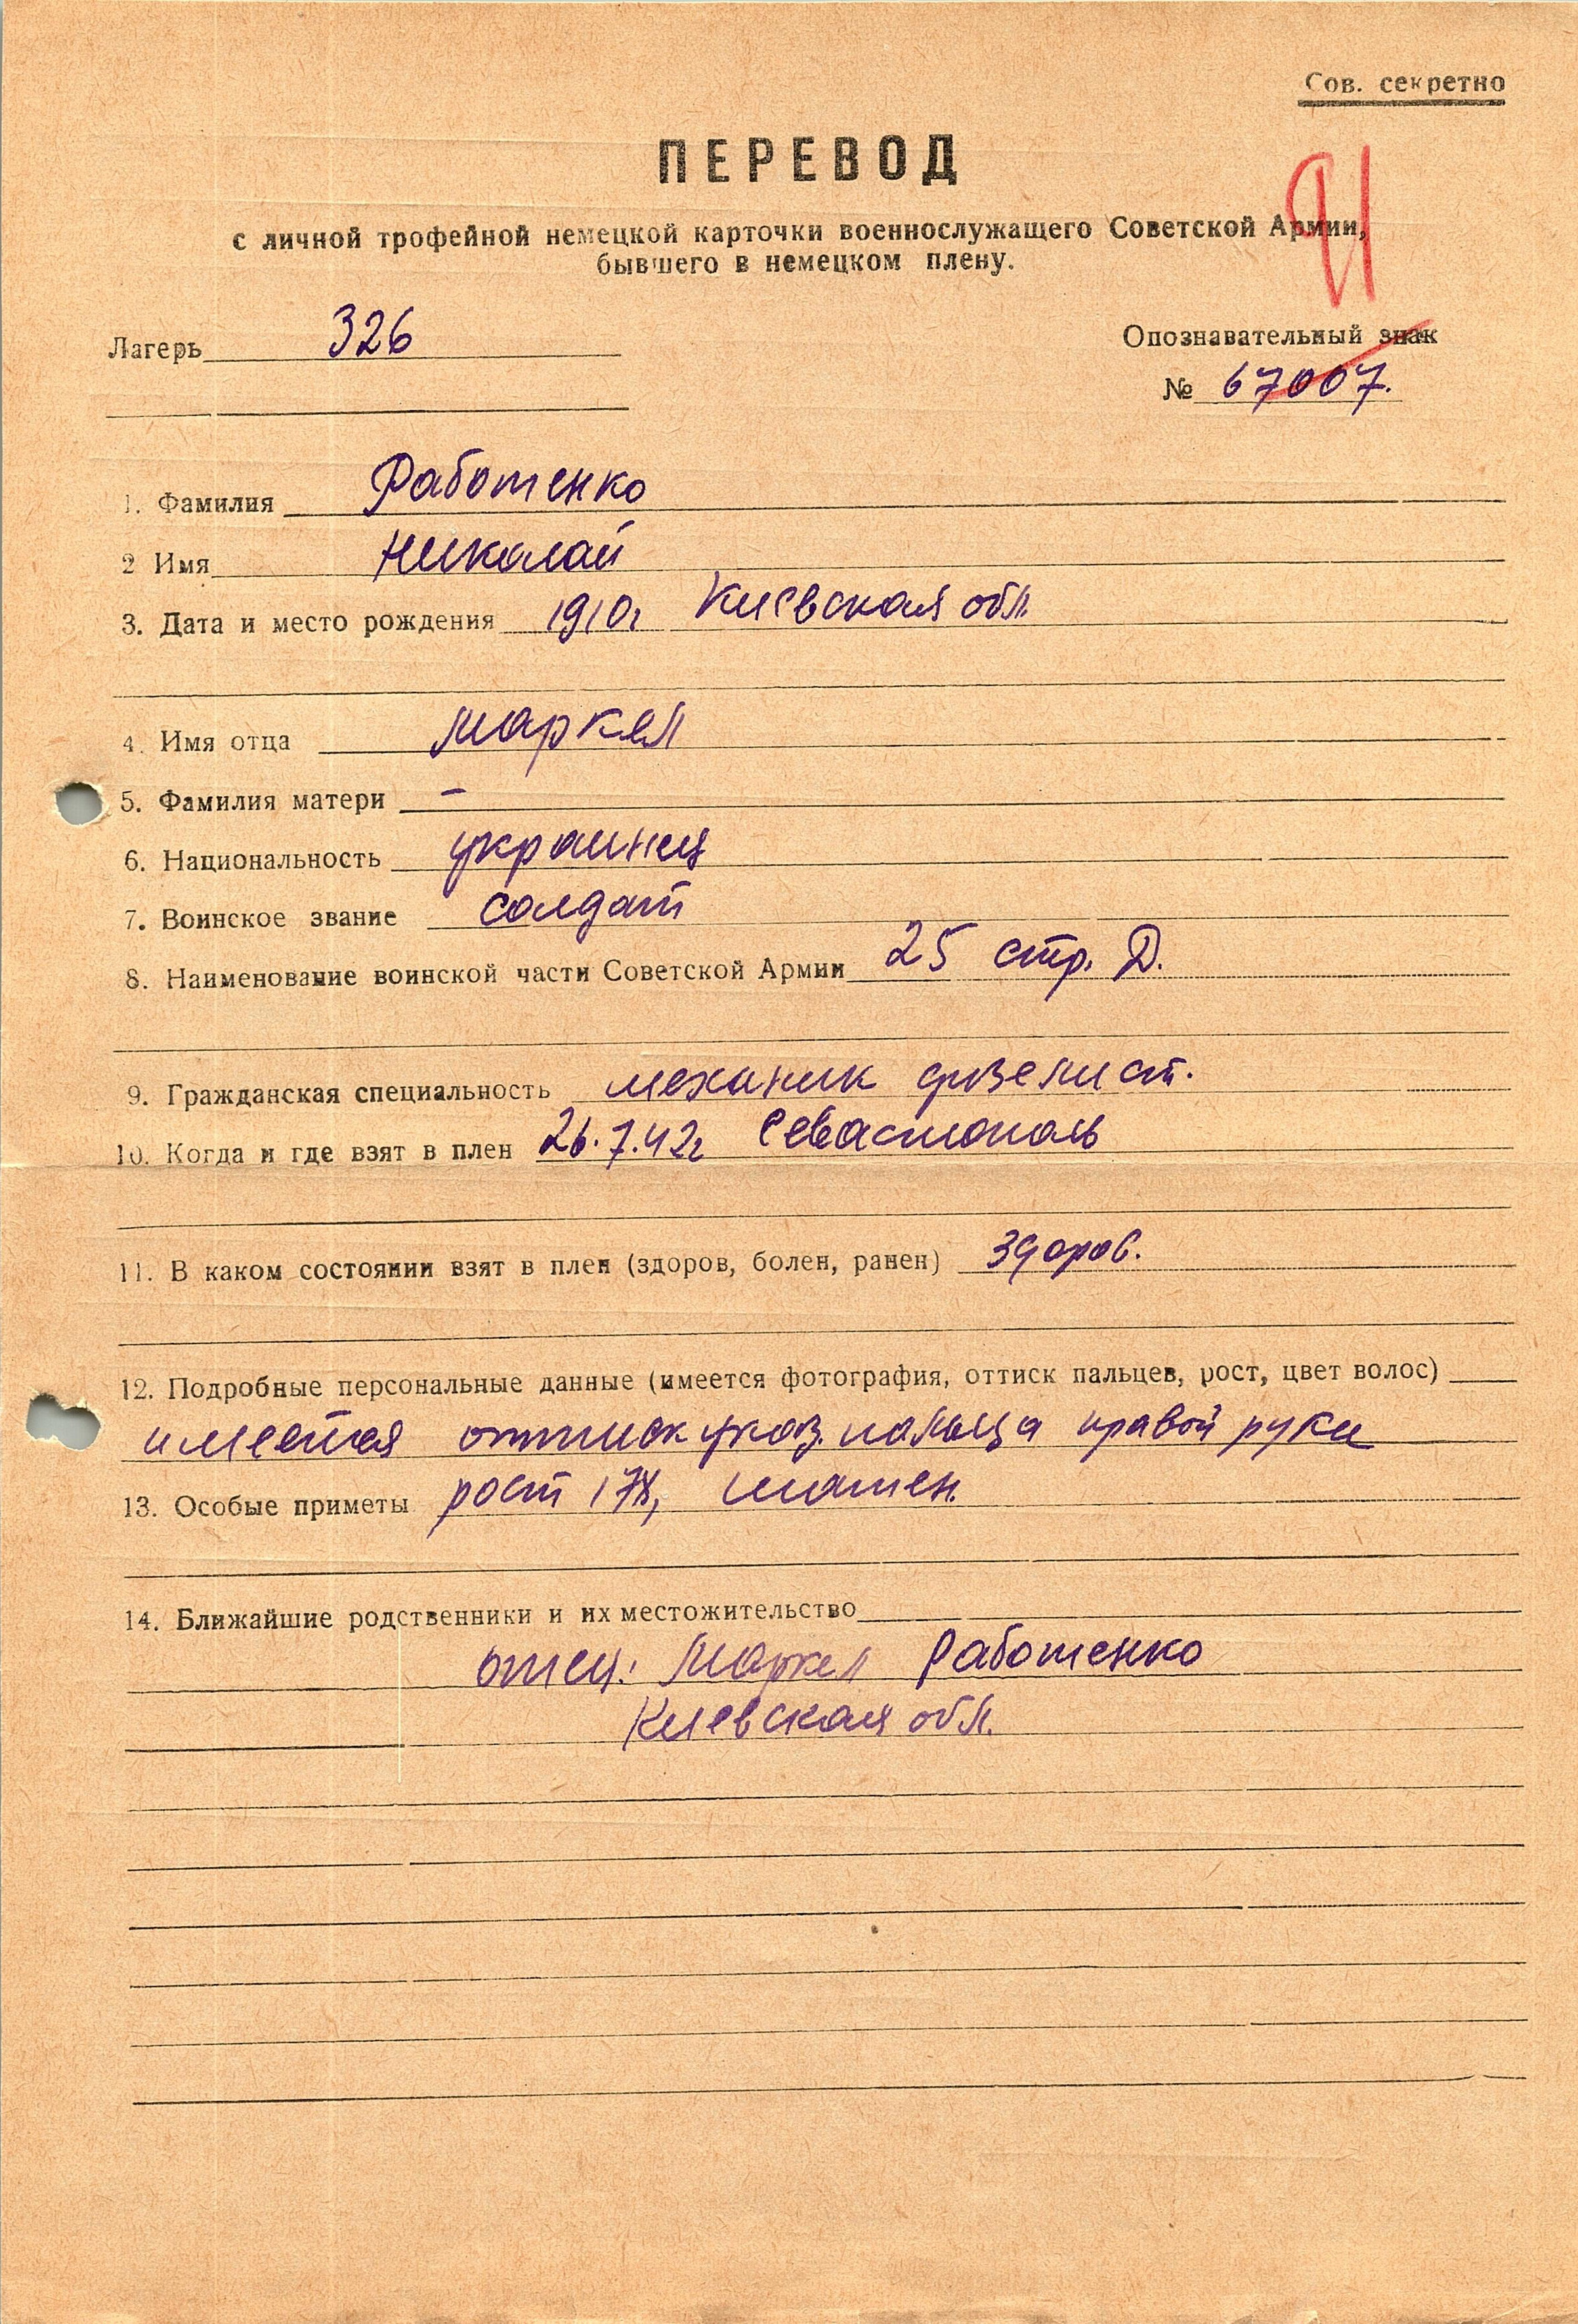 Сов. секретно
ПЕРЕВОД
с личной трофейной немецкой карточки военнослужащего Советской Армии,
бывшего в немецком плену.
Лагерь 326
Опознавательный знак
№ 67007.
1. Фамилия Работенко
2 Имя Николай
3. Дата и место рождения 1910г Киевская обл.
4. Имя отца Маркел
5. Фамилия матери –
6. Национальность украинец
7. Воинское звание солдат
8. Наименование воинской части Советской Армии 25 стр. Д.
9. Гражданская специальность механик дизелист.
10. Когда и где взят в плен 26.7.42г Севастополь
11. В каком состоянии взят в плен (здоров, болен, ранен) здоров.
12. Подробные персональные данные (имеется фотография, оттиск пальцев, рост, цвет волос)
имеется оттиск указ. пальца правой руки
13. Особые приметы рост 178, шатен.
14. Ближайшие родственники и их местожительство
отец: Маркел Работенко
Киевская обл.